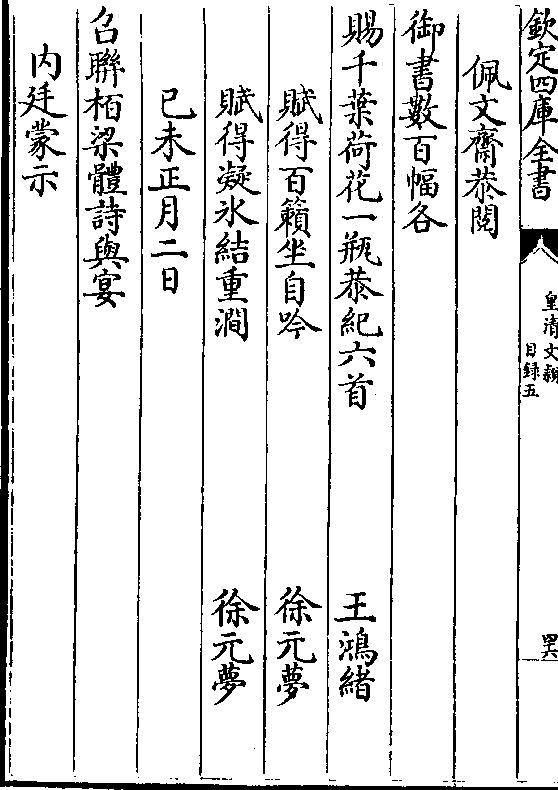 欽定四庫全書
皇清文穎
目録五
四六
佩文齋恭閱
御書數百幅各
賜千葉荷花一瓶恭紀六首 王鴻緒
賦得百籟坐自吟 徐元夢
賦得凝氷結重澗 徐元夢
己未正月二日
召聯栢梁體詩與宴
内廷蒙示